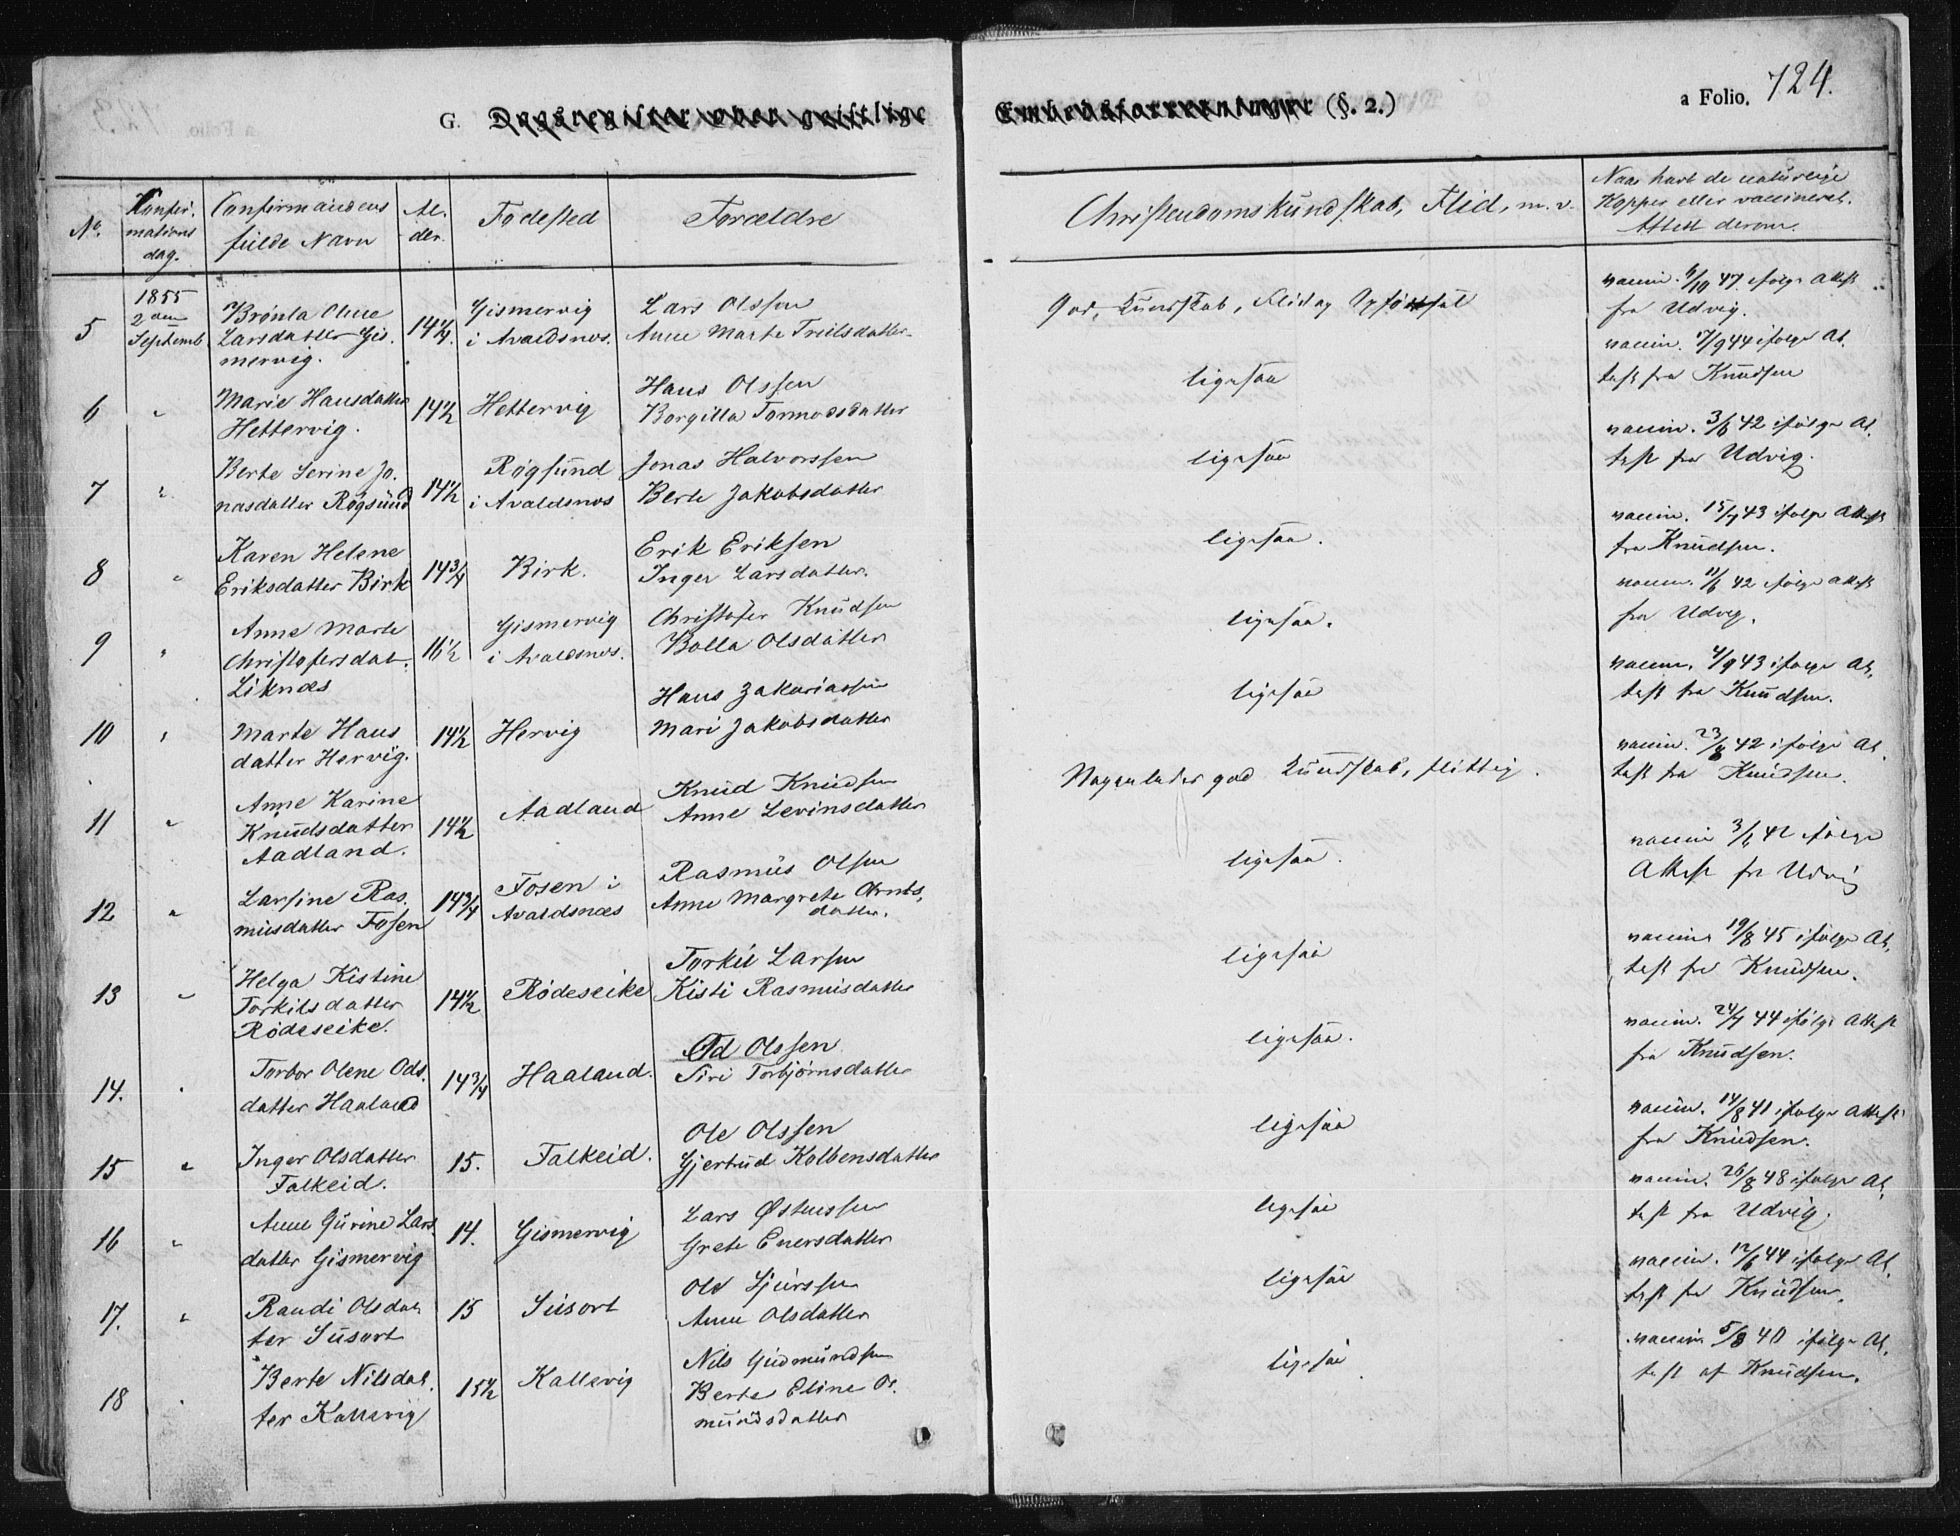 G. Dagsregister over geistlige Embedsforretninger (§. 2.)
a Folio. 724.
No.
Konfir-
mations
dag.
Confirmandens
fulde Navn
Al-
der.
Fødested
Forældre
Christendomskundskab, Flid, m. v.
Naar havt de naturlige
Kopper eller vaccineret.
Attest derom.
5
1855
2den
Septemb
Brønla Oline
Larsdatter Gis-
mervig.
14¼.
Gismervig
i Avaldsnes.
Lars Olssen
Anne Marte Trulsdatter
God Kundskab, Flid og Opførsel
vaccin. 6/10 47 ifølge Attest
fra Udvig.
6
"
Marie Hansdatter
Hettervig.
14½
Hettervig
Hans Olssen
Borgilla Tormodsdatter
ligesaa
vaccin. 7/9 44 ifølge At-
test fra Knudsen
7
"
Berte Serine Jo-
nasdatter Røgsund
14½
Røgsund
i Avaldsnes
Jonas Halvorssen
Berte Jakobsdatter
ligesaa
vaccin. 3/6 42 ifølge At-
test fra Udvig.
8
"
Karen Helene
Eriksdatter Birk
14¾
Birk.
Erik Eriksen
Inger Larsdatter.
ligesaa.
vaccin. 15/7 43 ifølge Attest
fra Knudsen.
9
"
Anne Marte
Christofersdat-
Liknæs
16½
Gismervig
i Avaldsnes.
Christofer Knudsen
Bolla Olsdatter
ligesaa.
vaccin. 11/6 42 ifølge Attest
fra Udvig.
10
"
Marte Hans
datter Hervig.
14½
Hervig
Hans Zakariassen
Mari Jakobsdatter
ligesaa
vaccin. 4/9 43 ifølge At-
test fra Knudsen.
11
"
Anne Karine
Knudsdatter
Aadland.
14½
Aadland
Knud Knudsen
Anne Levinsdatter
Nogenledes god Kundskab, flittig.
vaccin. 23/8 42 ifølge At-
test fra Knudsen.
12
"
Larsine Ras-
musdatter Fosen
14¾
Fosen i
Avaldsnæs
Rasmus Olsen
Anne Margrete Arnts-
datter.
ligesaa.
vaccin 3/6 42 ifølge
Attest fra Udvig
13
"
Helga Kistine
Torkilsdatter
Rødeseike.
14½
Rødeseike
Torkil Larsen
Kisti Rasmusdatter
ligesaa
vaccin. 19/8 45 ifølge At-
test fra Knudsen.
14.
"
Torbor Olene Ods-
datter Haaland
14¾
Haaland.
Od Olssen
Siri Torbjørnsdatter
ligesaa.
vaccin. 24/7 44 ifølge Attest
fra Knudsen.
15
"
Inger Olsdatter
Falkeid.
15.
Falkeid.
Ole Olssen
Gjertrud Kolbensdatter
ligesaa
vaccin. 14/8 41 ifølge Attest
fra Knudsen.
16
"
Anne Gurine Lars
datter Gismervig
14.
Gismervig
Lars Østenssen
Grete Enersdatter
ligesaa
vaccin. 26/8 48 ifølge At-
test fra Udvig.
17.
"
Randi Olsdat
ter Susort
15
Susort
Ole Sjurssen
Anne Olsdatter
ligesaa
vaccin. 12/6 44 ifølge At-
test fra Knudsen.
18
"
Berte Nilsdat-
ter Kallevig
15½
Kallevig
Nils Gudmundsen
Berte Eline As-
mundsdatter
ligesaa
vaccin. 5/8 40 ifølge At-
test af Knudsen.